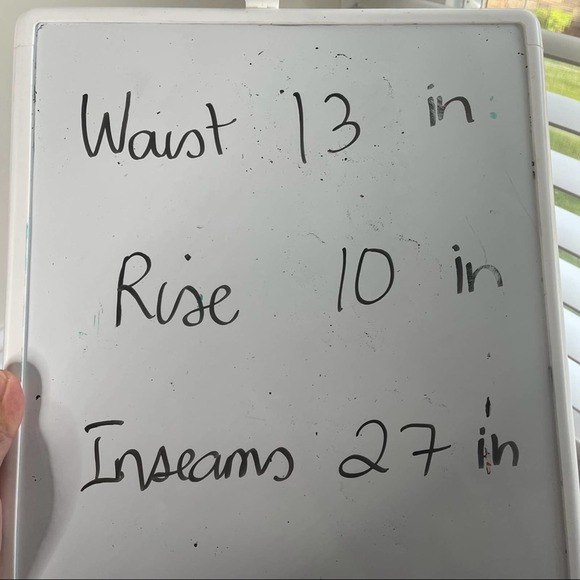 Waist 13 in
Rise 10 in
Inseams 27 in